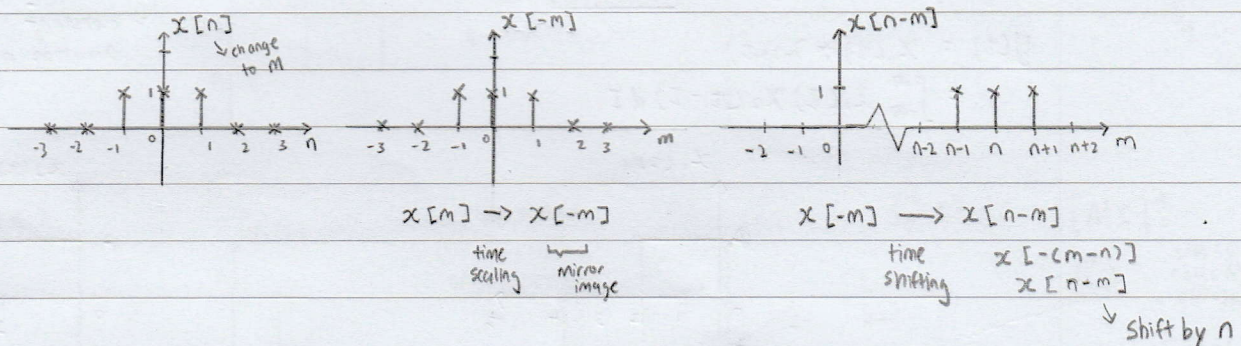 x[n]
change
to m
1
0
-3 -2 -1 1 2 3 n
x[-m]
1
0
-3 -2 -1 1 2 3 m
x[n-m]
1
-2 -1 0 n-2 n-1 n n+1 n+2 m
x[m] → x[-m]
time
scaling
mirror
image
x[-m] → x[n-m]
time
shifting
x[-(m-n)]
x[n-m]
shift by n